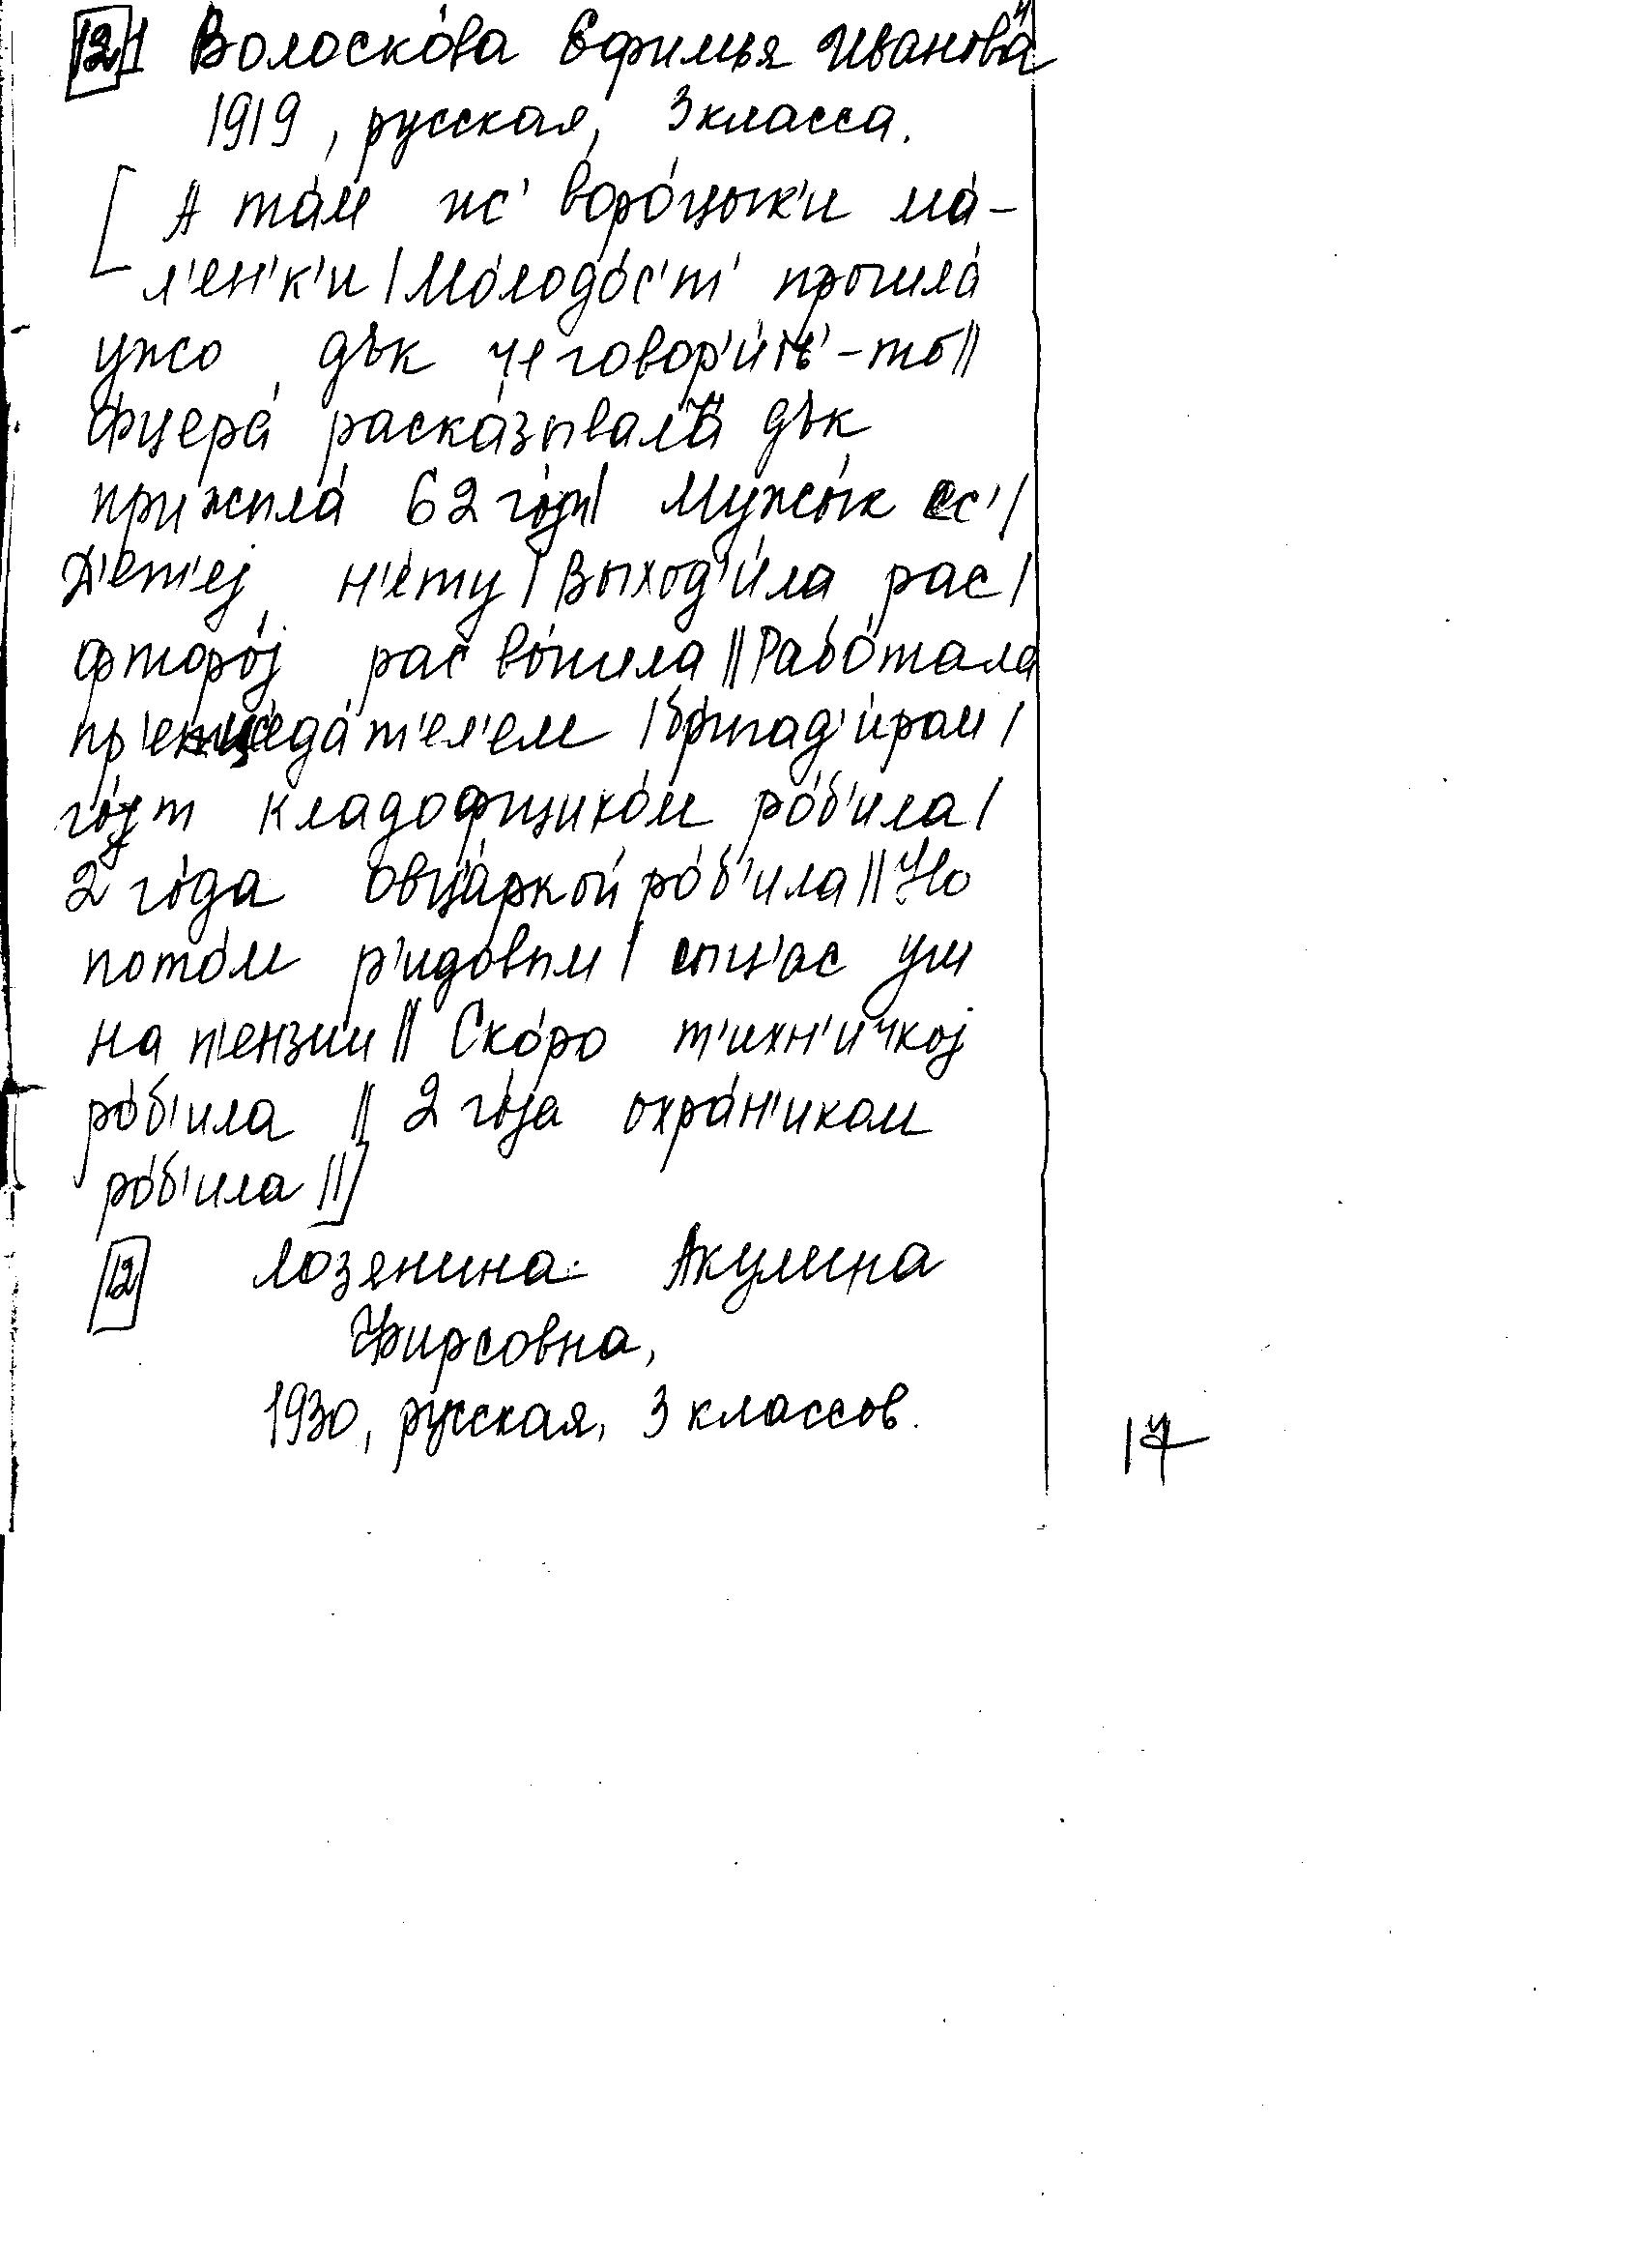 12 Волоско́ва Ефимья Иванов
1919, русская, 3 класса.
[ А та́м ис' воро́цык'и ма́-
л'ен'к'и | Мо́лодо́с'т' прошла́
ужо дък че говор'и́ть-то ||
Фцера́ раска́зывала дък
прижила́ 62 го́ды | Мужы́к ес' |
Д'ет'еј н'е́ту | Выход'и́ла рас |
фторо́ј рас во́шла || Рабо́тала
пр'ецседа́т'ел'ем | бригад'и́рам |
го́т кладофщико́м ро́б'ила |
2 го́да овца́ркой ро́б'ила || Но
пото́м р'идовы́м | сыц'ас уш
на п'е́нзии || Ско́ро т'ихн'и́чкој
ро́б'ила || 2 го́да охра́н'иком
ро́б'ила || ]
12 Лозянина Акулина
Фирсовна,
1930, русская, 3 классов.
17